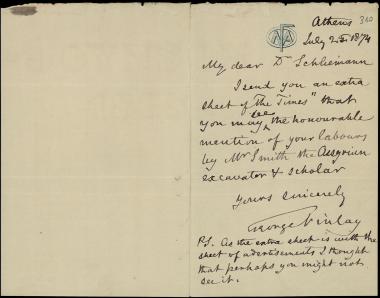 Athens 310
July 25 1874
My dear Dr Schliemann
I send you an extra
sheet of "The Times" that
you may see the honourable
mention of your labours
by Mr Smith the Assyrian
excavator & scholar
Yours sincerely
George Finlay
P.S. As the extra sheet is with the
sheet of advertisements I thought
that perhaps you might not
see it.